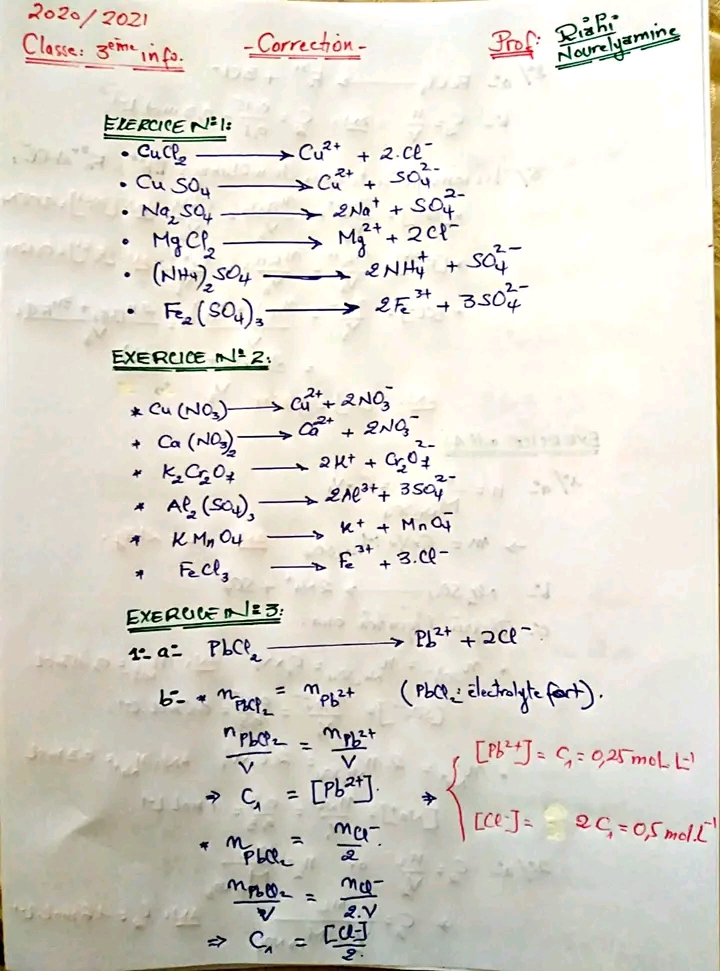 2020/2021
Classe: 3ème info. - Correction - Prof: Riahi Nourelyamine
EXERCICE N°1:
• CuCl₂ ⟶ Cu²⁺ + 2.Cl⁻
• CuSO₄ ⟶ Cu²⁺ + SO₄²⁻
• Na₂SO₄ ⟶ 2Na⁺ + SO₄²⁻
• MgCl₂ ⟶ Mg²⁺ + 2Cl⁻
• (NH₄)₂SO₄ ⟶ 2NH₄⁺ + SO₄²⁻
• Fe₂(SO₄)₃ ⟶ 2Fe³⁺ + 3SO₄²⁻
EXERCICE N° 2:
* Cu(NO₃) ⟶ Cu²⁺ + 2NO₃⁻
* Ca(NO₃)₂ ⟶ Ca²⁺ + 2NO₃⁻
* K₂Cr₂O₇ ⟶ 2K⁺ + Cr₂O₇²⁻
* Al₂(SO₄)₃ ⟶ 2Al³⁺ + 3SO₄²⁻
* KMnO₄ ⟶ K⁺ + MnO₄⁻
* FeCl₃ ⟶ Fe³⁺ + 3.Cl⁻
EXERCICE N° 3:
1- a- PbCl₂ ⟶ Pb²⁺ + 2Cl⁻
b- * n PbCl₂ = n Pb²⁺ (PbCl₂: électrolyte fort).
n PbCl₂ / V = n Pb²⁺ / V
⇒ C₁ = [Pb²⁺]. ⇒ { [Pb²⁺] = C₁ = 0,25 mol.L⁻¹
[Cl⁻] = 2C₁ = 0,5 mol.L⁻¹
* n PbCl₂ = n Cl⁻ / 2.
n PbCl₂ / V = n Cl⁻ / 2.V
⇒ C₁ = [Cl⁻] / 2.